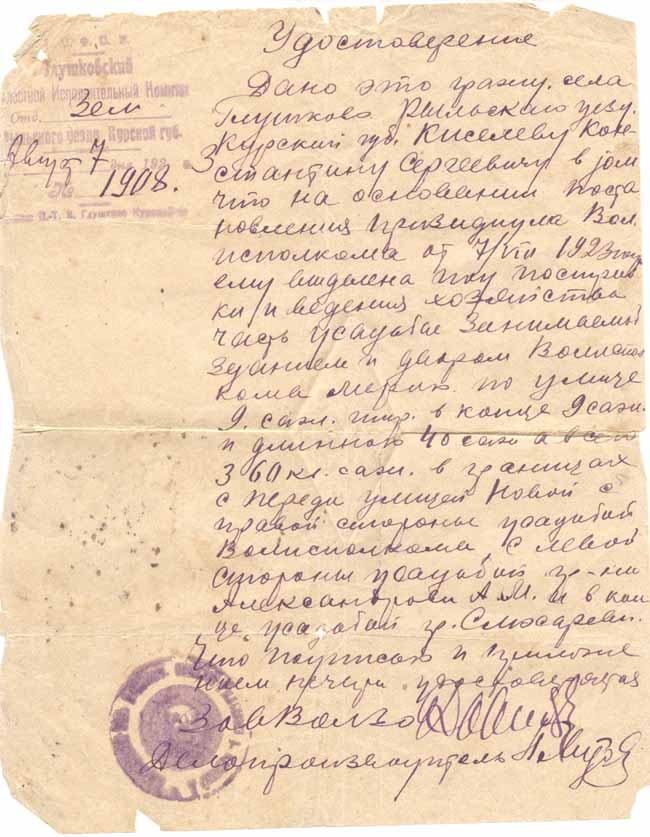 Удостоверение
Р.С.Ф.С.Р.
Глушковский
Волостной Исполнительный Комитет
Отд. Зем.
Рыльского уезда, Курской губ.
Август 7 дня 192
№ 1908.
П.-Т. К. Глушково Курской
Дано это гражд. села
Глушково Рыльского уезд.
Курский губ. Киселеву Кон
стантину Сергеевичу в том
что на основании поста
новления Президиума Вол.
исполкома от 7/VIII 1923 года
ему выделена под построй
ки и ведения хозяйства
часть усадьбы занимаемой
зданием и двором Волиспол
кома мерою по улице
9 саж. шир. в конце 9 саж.
и длинною 40 саж а всего
360 кв. саж. в границах
с переди улицей Новой с
правой стороны усадьбой
Волисполкома, с левой
стороны усадьбой гр-ки
Александрови А.М. и в кон
це усадьбой гр. Слюсареви.
Что подписью и приложе
нием печати удостоверяется
ЗавВолзо
Делопроизводитель